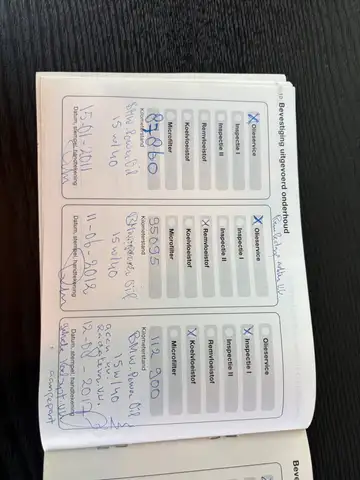 Bevestiging uitgevoerd onderhoud
X Olieservice
Inspectie I
Inspectie II
Remvloeistof
Koelvloeistof
Microfilter
Kilometerstand
87260
BMW Power Oil
15w/40
15-01-2011
Datum, stempel, handtekening
X Olieservice
Inspectie I
Inspectie II
X Remvloeistof
Koelvloeistof
Microfilter
Kilometerstand
95095
BMW Power Oil
15w/40
11-06-2012
Datum, stempel, handtekening
Olieservice
X Inspectie I
Inspectie II
Remvloeistof
X Koelvloeistof
Microfilter
Kilometerstand
112 900
BMW Power Oil
15w/40
accu vv.
12-08-2017
Datum, stempel, handtekening
Beve